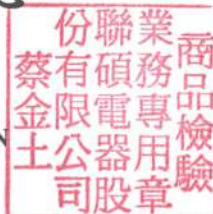 商品檢驗
業務專用章
聯碩電器股
份有限公司
蔡金土
N